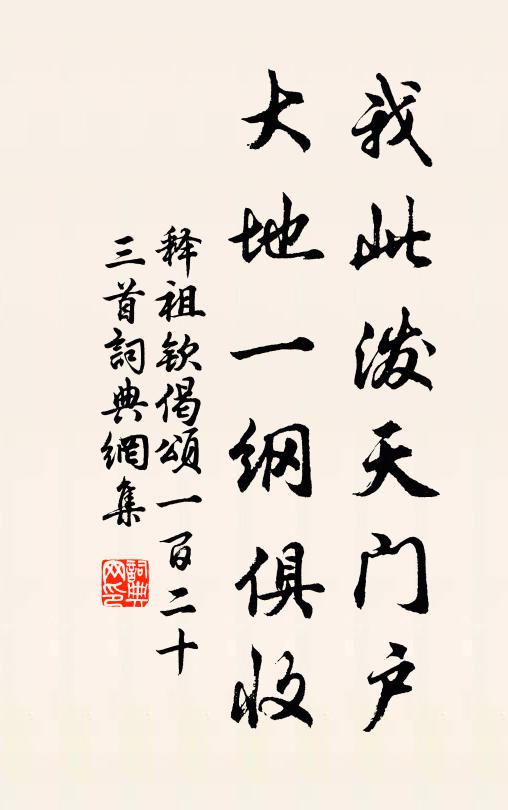 我此泼天门户
大地一纲俱收
释祖钦偈颂一百二十
三首词典網集
詞典
网印